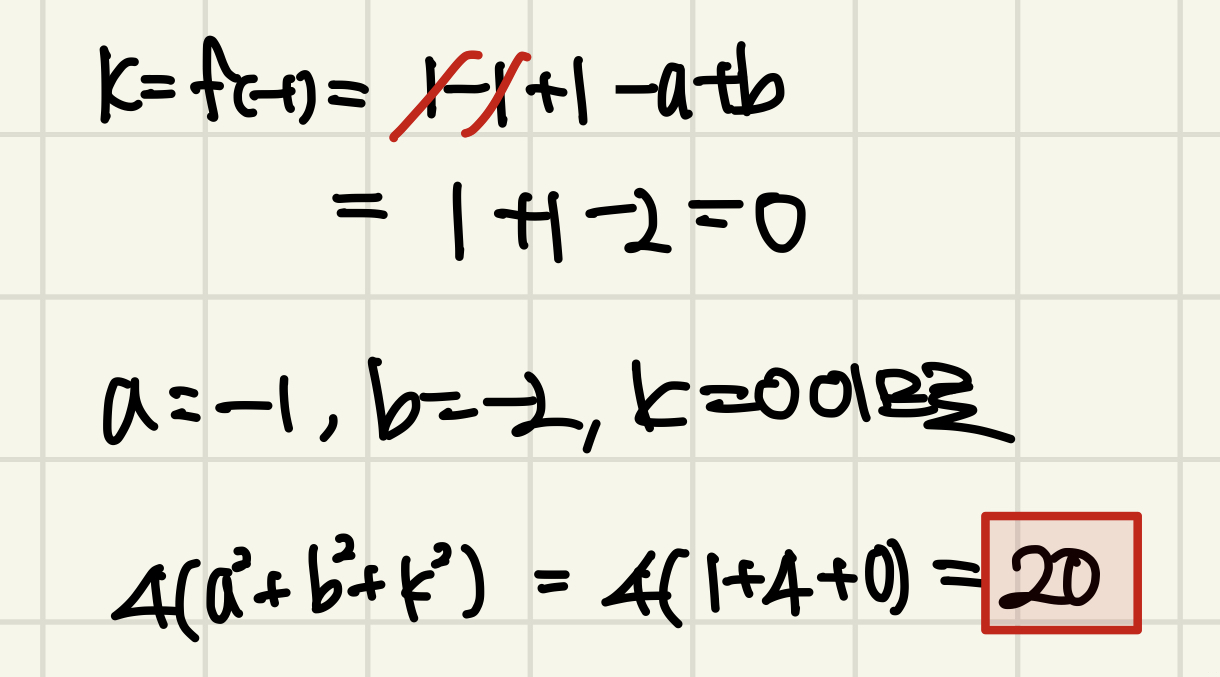 k=f(-1)= 1-1+1-a+b
= 1+1-2=0
a=-1, b=-2, k=0이므로
4(a²+b²+k²) = 4(1+4+0) =20